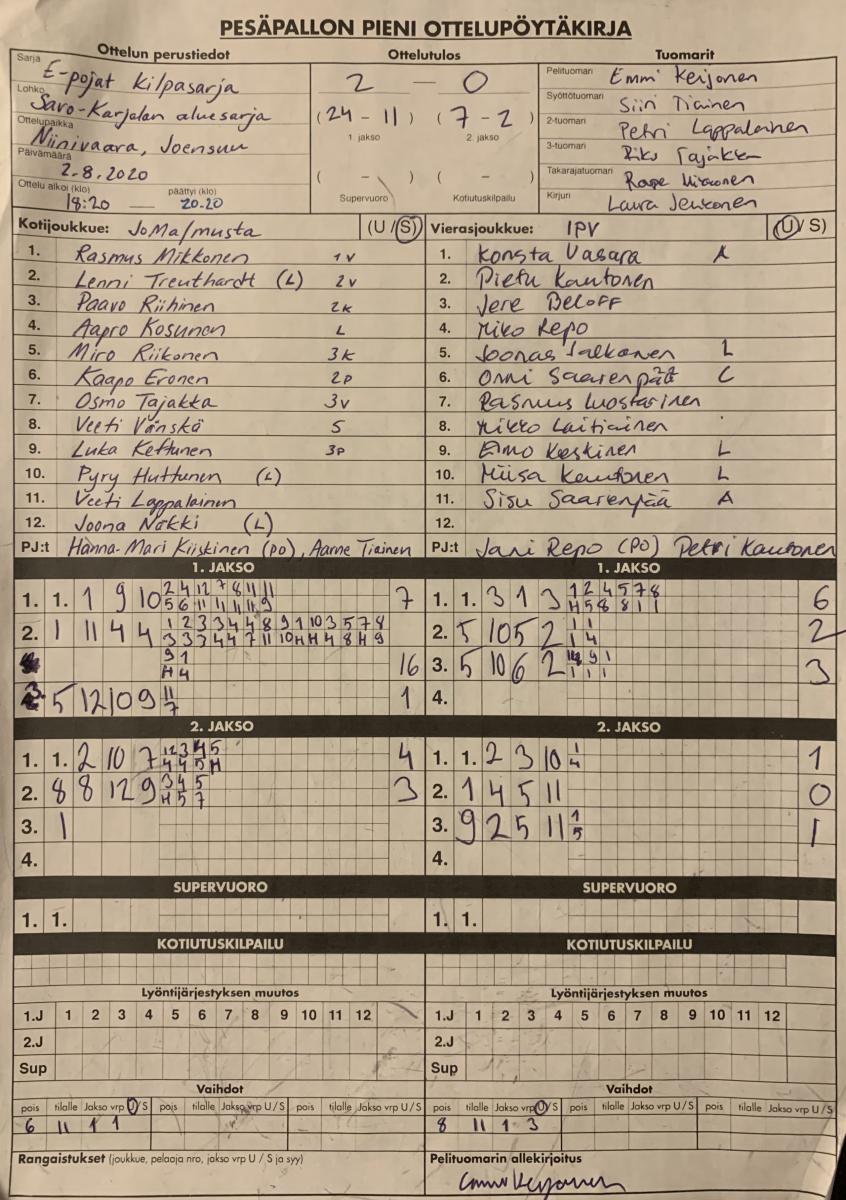 PESÄPALLON PIENI OTTELUPÖYTÄKIRJA
Ottelun perustiedot
Ottelutulos
Tuomarit
Sarja E-pojat Kilpasarja
Lohko Savo-Karjalan aluesarja
Ottelupaikka Niinivaara, Joensuu
Päivämäärä 2.8.2020
Ottelu alkoi (klo) päättyi (klo)
18:20 — 20.20
2 — 0
(24 - 11) (7 - 2)
1. jakso 2. jakso
( - ) ( - )
Supervuoro Kotiutuskilpailu
Pelituomari Emmi Keijonen
Syöttötuomari Siiri Tiainen
2-tuomari Petri Lappalainen
3-tuomari Riku Tajakka
Takarajatuomari Roope Mikkonen
Kirjuri Laura Jeskonen
Kotijoukkue: JoMa/musta (U/S)
1. Rasmus Mikkonen 1V
2. Lenni Treuthardt (L) 2V
3. Paavo Riihinen 2K
4. Aapro Kosunen L
5. Miro Riikonen 3K
6. Kaapo Eronen 2P
7. Osmo Tajakka 3V
8. Veeti Vänskä S
9. Luka Kettunen 3P
10. Pyry Huttunen (L)
11. Veeti Lappalainen
12. Joona Näkki (L)
PJ:t Hanna-Mari Kiiskinen (PO), Aarne Tiainen
Vierasjoukkue: IPV (U/S)
1. Konsta Vasara A
2. Pietu Kautonen
3. Jere Beloff
4. Miko Repo
5. Joonas Jalkanen L
6. Onni Saarenpää C
7. Rasmus Luostarinen
8. Mikko Laitiainen
9. Eimo Keskinen L
10. Miisa Kautonen L
11. Sisu Saarenpää A
12.
PJ:t Jani Repo (PO) Petri Kautonen
1. JAKSO
1. 1. 1 9 10 2 4 12 7 8 11 11 7
5 6 11 11 11 11 9
2. 1 11 4 4 1 2 3 3 4 4 8 9 1 10 3 5 7 8
3 3 3 4 4 7 11 10 H H 4 8 H 9
9 1 16
H 4
3. 5 12 10 9 11 1
7
1. JAKSO
1. 1. 3 1 3 1 2 4 5 7 8 6
H 5 8 8 1 1
2. 5 10 5 2 1 1 2
1 4
3. 5 10 6 2 9 1 3
1 1 1
4.
2. JAKSO
1. 1. 2 10 7 12 3 4 5 4
4 4 5 H
2. 8 8 12 9 3 4 5 3
H 5 7
3. 1
4.
2. JAKSO
1. 1. 2 3 10 1 1
4
2. 1 4 5 11 0
3. 9 2 5 11 1 1
5
4.
SUPERVUORO
1. 1.
SUPERVUORO
1. 1.
KOTIUTUSKILPAILU
KOTIUTUSKILPAILU
Lyöntijärjestyksen muutos
1.J 1 2 3 4 5 6 7 8 9 10 11 12
2.J
Sup
Lyöntijärjestyksen muutos
1.J 1 2 3 4 5 6 7 8 9 10 11 12
2.J
Sup
Vaihdot
pois tilalle Jakso vrp U/S pois tilalle Jakso vrp U/S pois tilalle Jakso vrp U/S
6 11 1 1
Vaihdot
pois tilalle Jakso vrp U/S pois tilalle Jakso vrp U/S pois tilalle Jakso vrp U/S
8 11 1 3
Rangaistukset (joukkue, pelaaja nro, jakso vrp U / S ja syy)
Pelituomarin allekirjoitus
Emmi Keijonen